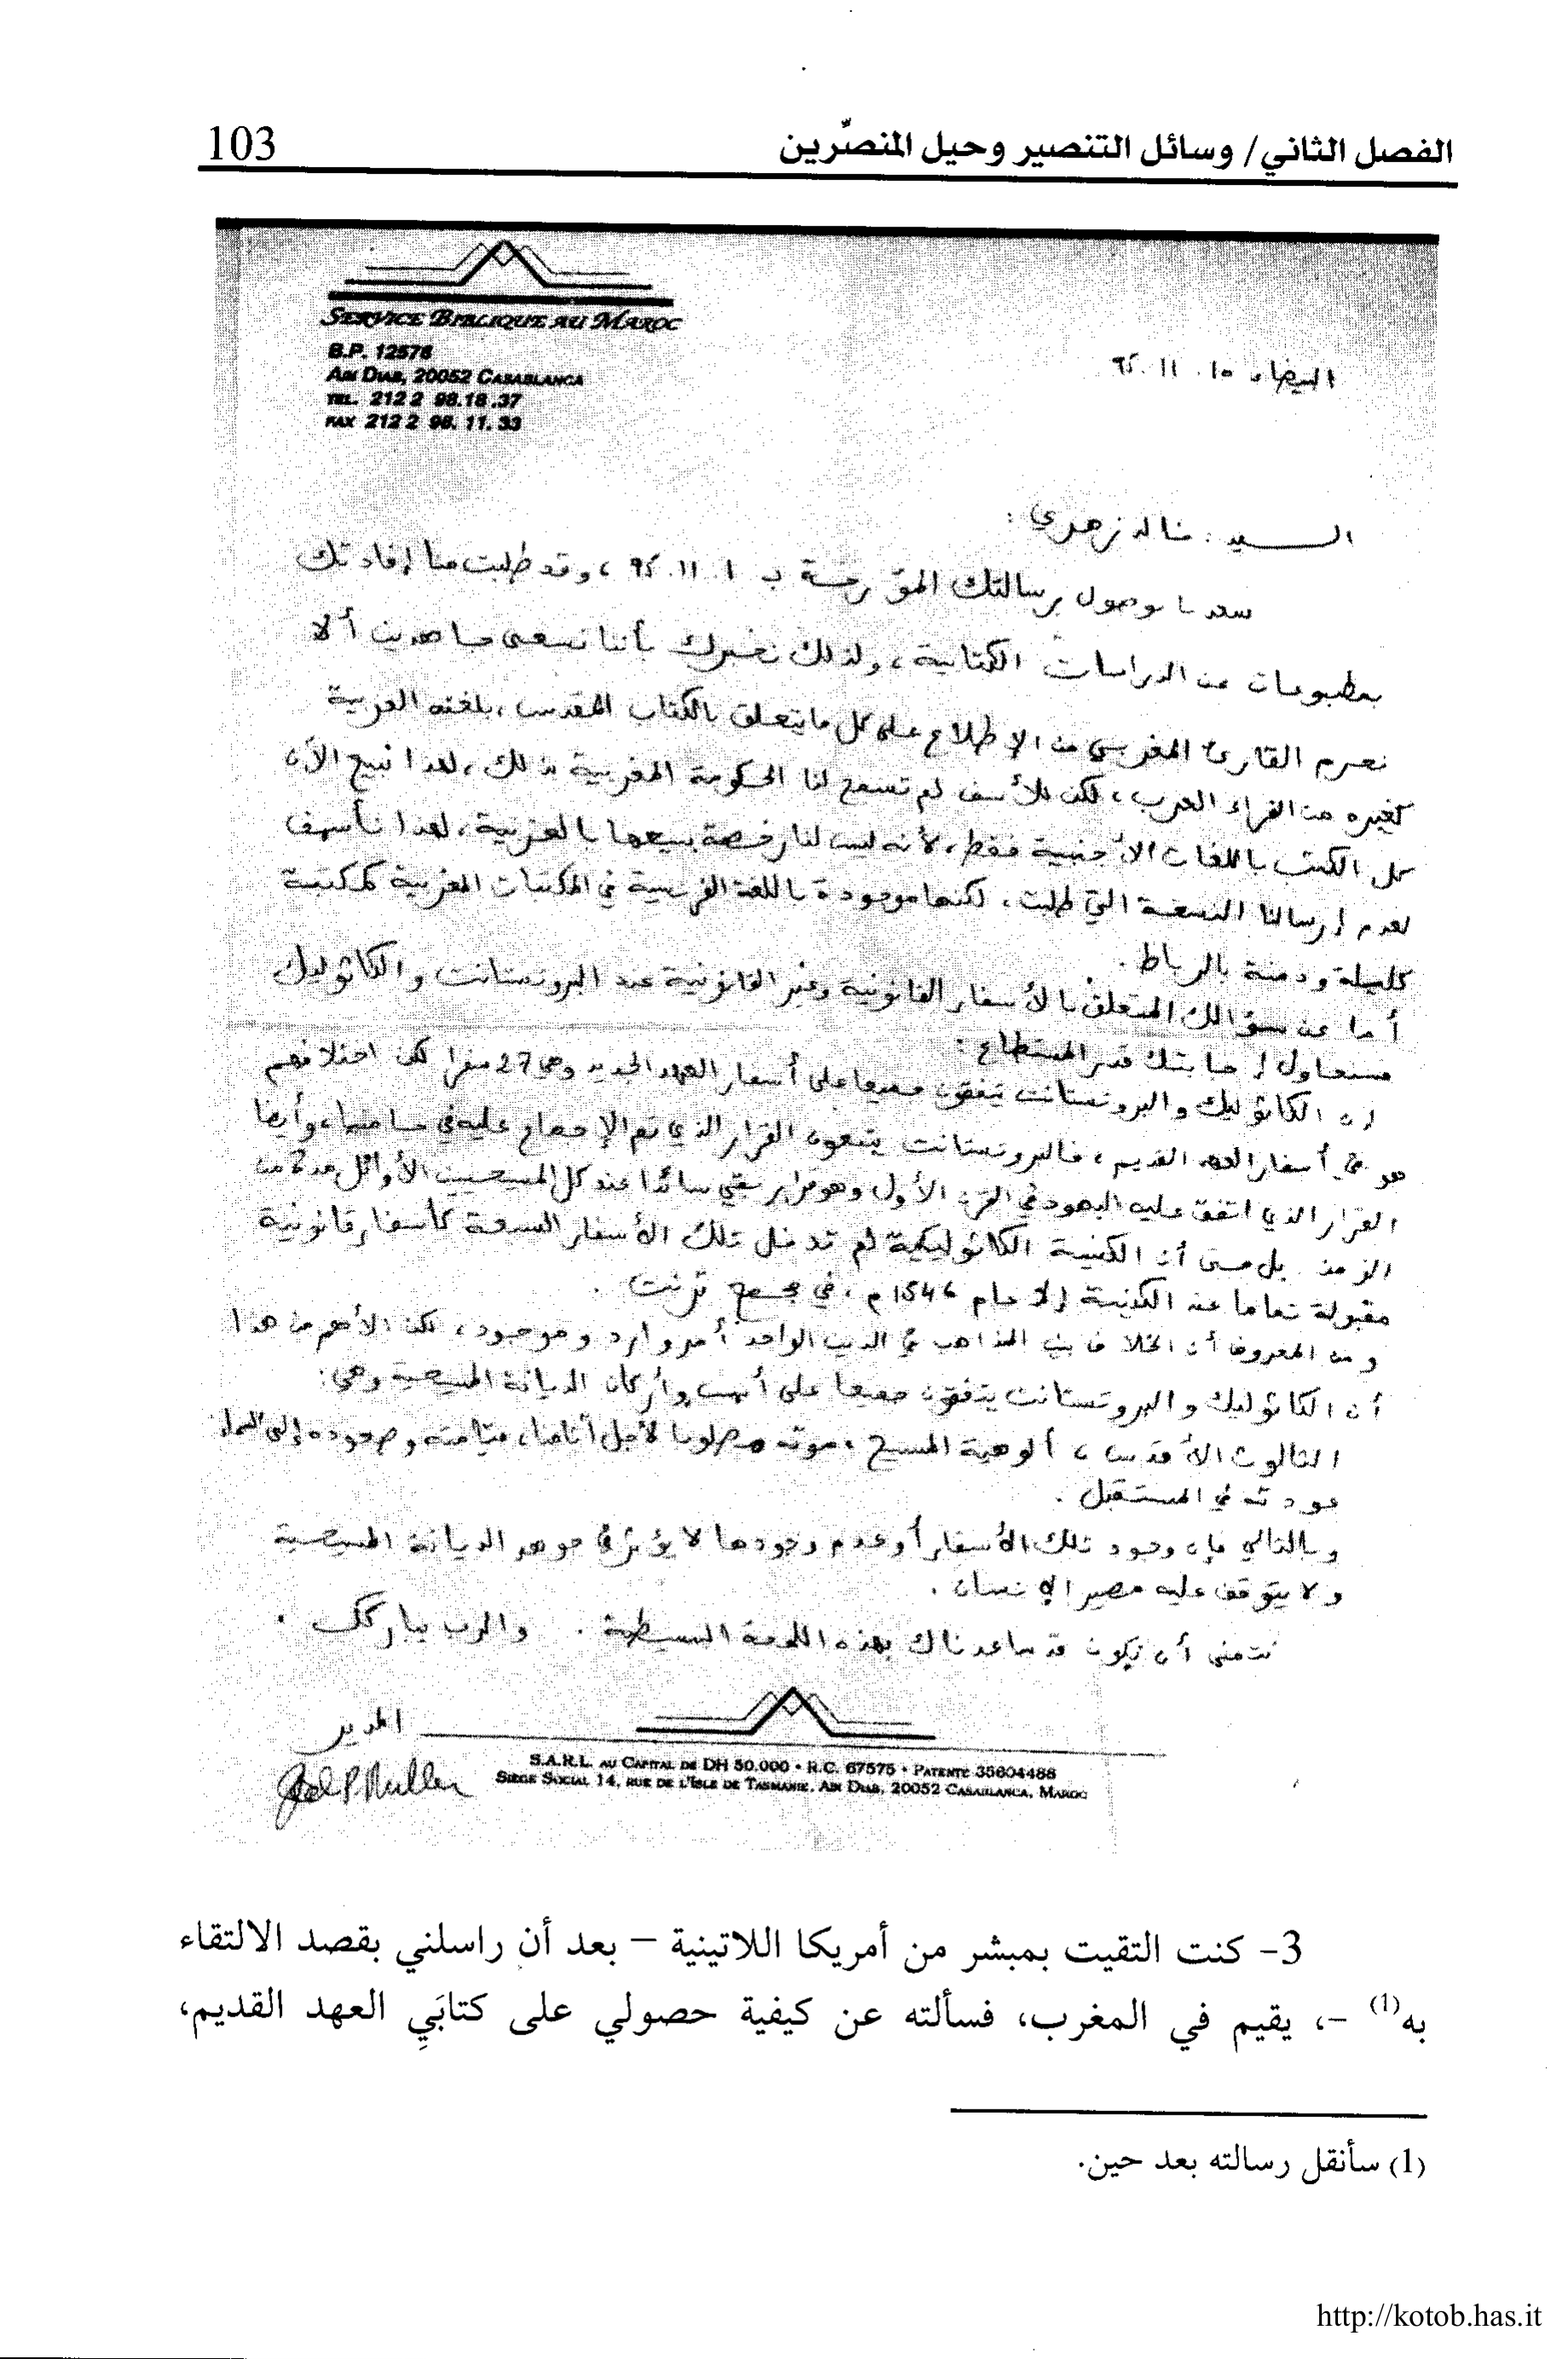 الفصل الثاني/ وسائل التنصير وحيل المنصِّرين 103
SERVICE BIBLIQUE AU MAROC
B.P. 12576
AIN DIAB, 20052 CASABLANCA
TEL. 212 2 98.18.37
FAX 212 2 98.11.33
البيضاء 15.11.95
السيد: خالد زهري:
سعدنا بوصول رسالتك المؤرخة ب 1.11.95، وقد طلبت منا إفادتك
بمطبوعات عن الدراسات الكتابية، ولذلك نخبرك بأننا نسعى جاهدين ألا
نحرم القارئ المغربي من الإطلاع على كل ما يتعلق بالكتاب المقدس، بلغته العربية
كغيره من القراء العرب، لكن للأسف لم تسمح لنا الحكومة المغربية بذلك، لهذا نبيع الآن
كل الكتب باللغات الأجنبية فقط، لأنه ليست لنا رخصة بيعها بالعربية، لهذا نأسف
لعدم إرسالنا النسخة التي طلبت، لكنها موجودة باللغة الفرنسية في المكتبات المغربية كمكتبة
كليلة ودمنة بالرباط.
أما عن سؤالك المتعلق بالأسفار القانونية وغير القانونية عند البروتستانت والكاثوليك
فسنحاول إجابتك قدر المستطاع:
إن الكاثوليك والبروتستانت يتفقون جميعا على أسفار العهد الجديد وهي 27 سفرا لكن اختلافهم
هو في أسفار العهد القديم، فالبروتستانت يتبعون القرار الذي تم الإجماع عليه في، وأيضا
القرار الذي اتفق عليه اليهود في القرن الأول وهو قرار بقي سائدا عند كل المسيحيين الأوائل مدة من
الزمن بل حتى أن الكنيسة الكاثوليكية لم تدخل تلك الأسفار السبعة كأسفار قانونية
مقبولة تماما عند الكنيسة إلا عام 1546م، في مجمع ترنت.
ومن المعروف أن الخلاف بين المذاهب في الدين الواحد أمر وارد وموجود، لكن الأهم من هذا
أن الكاثوليك والبروتستانت يتفقون جميعا على أسس وأركان الديانة المسيحية وهي:
الثالوث الأقدس، ألوهية المسيح، موته مصلوبا لأجل آثامنا، قيامته وصعوده إلى السماء
عودته في المستقبل.
وبالتالي فإن وجود تلك الأسفار أو عدم وجودها لا يؤثر في جوهر الديانة المسيحية
ولا يتوقف عليه مصير الإنسان.
نتمنى أن نكون قد ساعدناك بهذه اللمحة البسيطة. والرب يباركك.
المدير
S.A.R.L. AU CAPITAL DE DH 50.000 • R.C. 67575 • PATENTE 35604488
SIEGE SOCIAL 14, RUE DE L'ISLE DE TASMANIE, AIN DIAB, 20052 CASABLANCA, MAROC
3- كنت التقيت بمبشر من أمريكا اللاتينية – بعد أن راسلني بقصد الالتقاء
به(1) –، يقيم في المغرب، فسألته عن كيفية حصولي على كتابَيِ العهد القديم،
(1) سأنقل رسالته بعد حين.
http://kotob.has.it